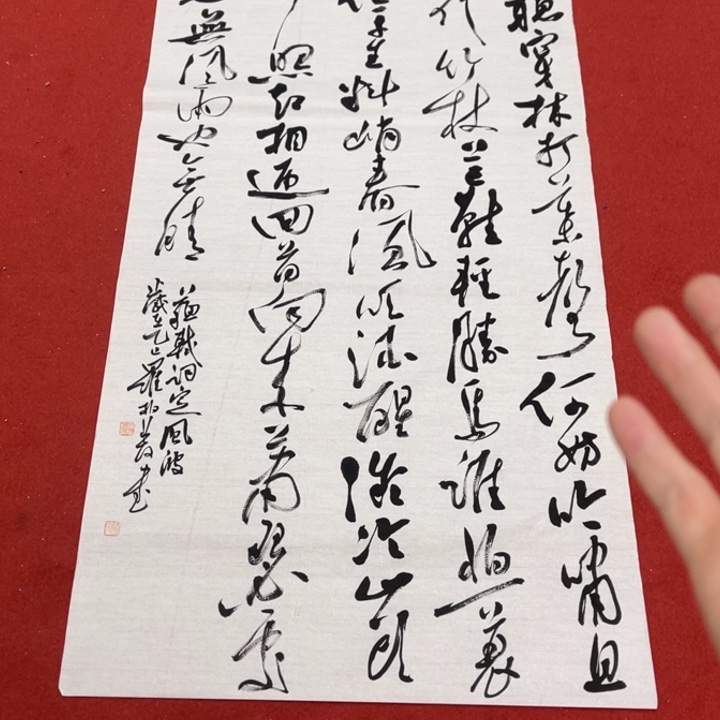 聽穿林打葉聲何妨吟嘯且
行竹杖芒鞋輕勝馬誰怕一蓑
任平生料峭春風吹酒醒微冷山頭
照却相迎回首向来蕭瑟處
無風雨也無晴
蘇軾詞定風波
歲在乙巳羅書